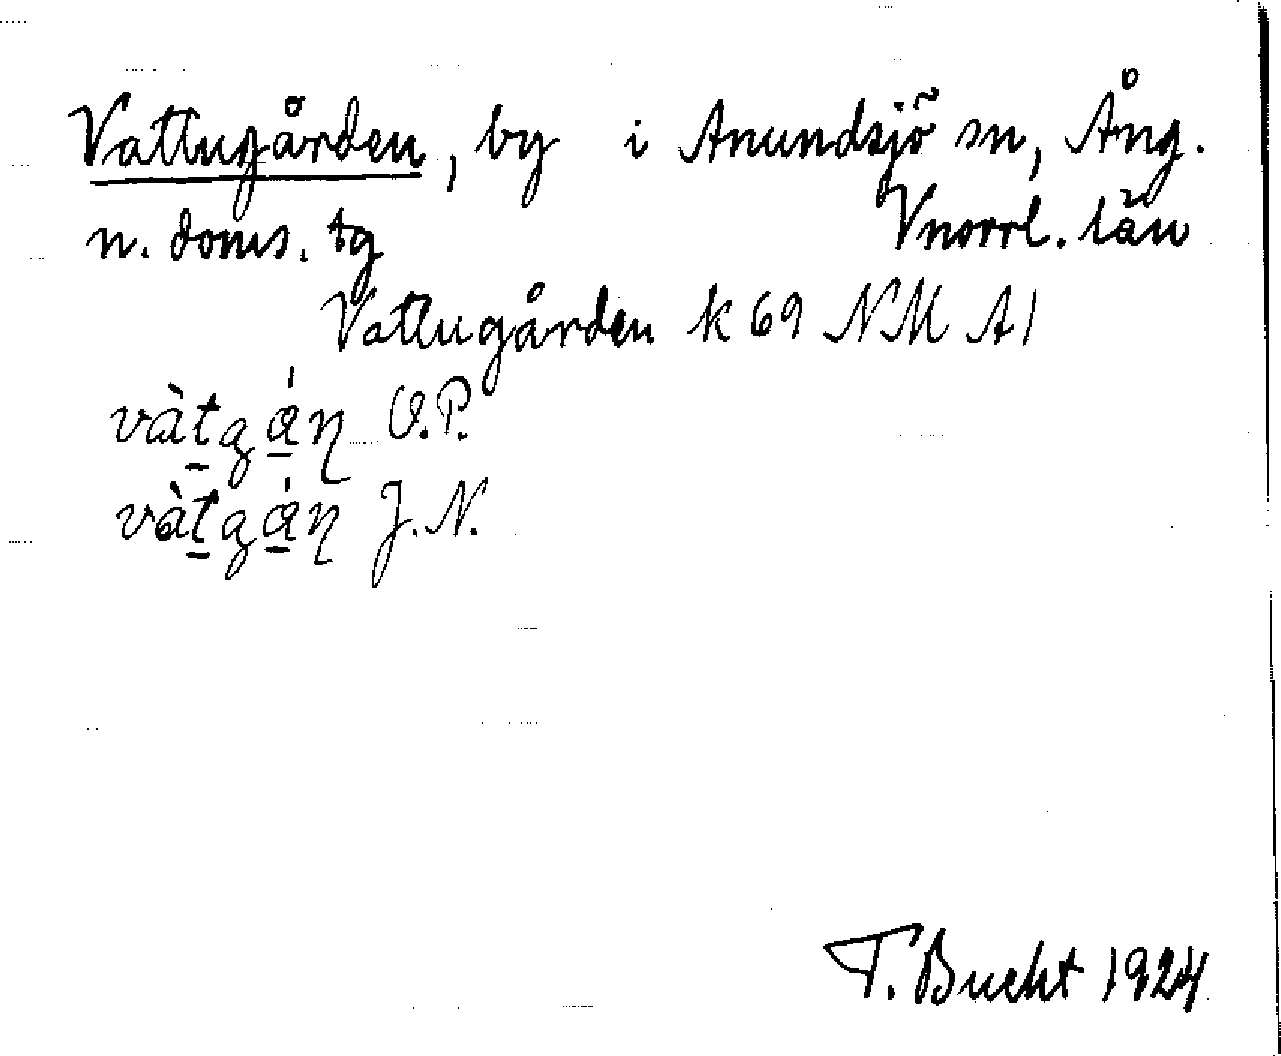 Vattugården, by i Anundsjö sn, Ång.
n. doms. tg Vnorrl. län
Vattugården k 69 NM A1
vàt̠gά̠ɳ O.P.
vàt̠gά̠ɳ J.N.
T. Bucht 1924